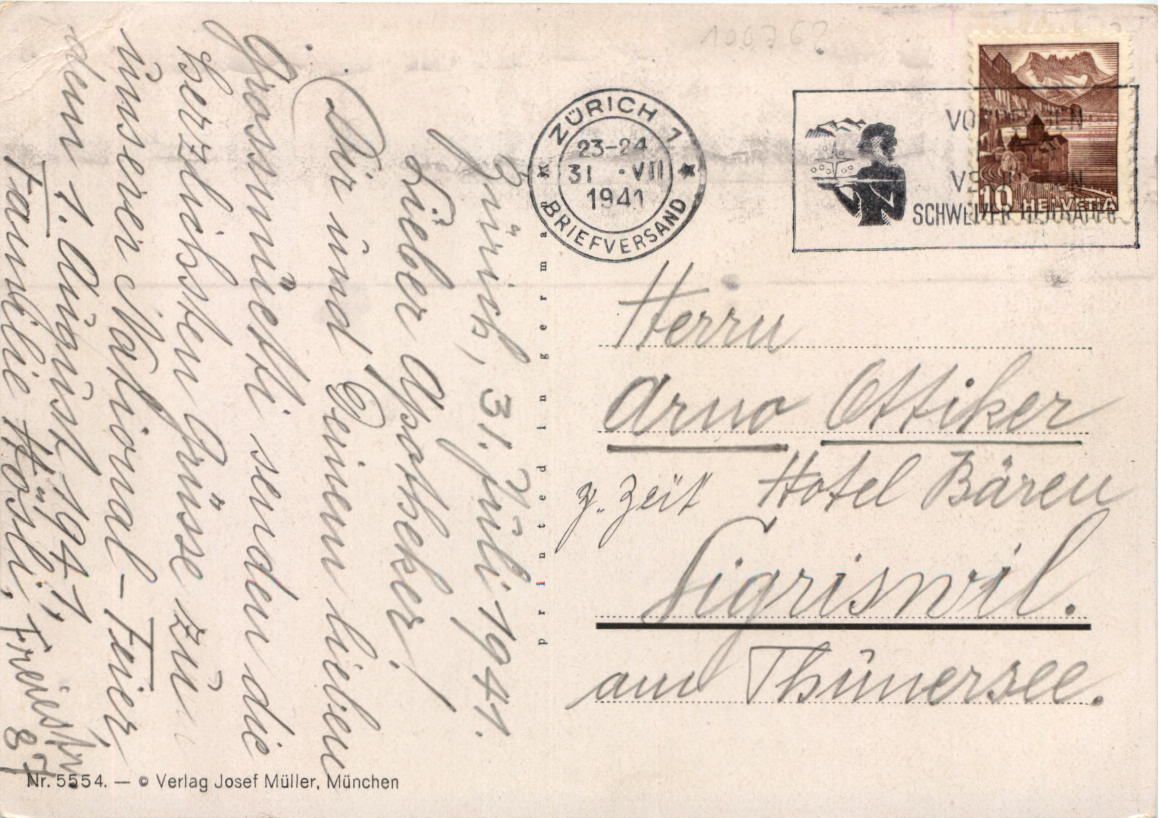 100762
ZÜRICH 1
23-24
31. VII
1941
BRIEFVERSAND
SCHWEIZER
10 HELVETIA
Zürich, 31. Juli 1941.
Lieber Apotheker!
Dir und Deinem lieben
Grossmuetti senden die
herzlichsten Grüsse zu
unserer National-Feier
dem 1. August 1941,
Familie Hösli, Freiestr.
87
printed in germa
Herrn
Arno Ottiker
z. Zeit Hotel Bären
Sigriswil.
am Thunersee.
Nr. 5554. — © Verlag Josef Müller, München